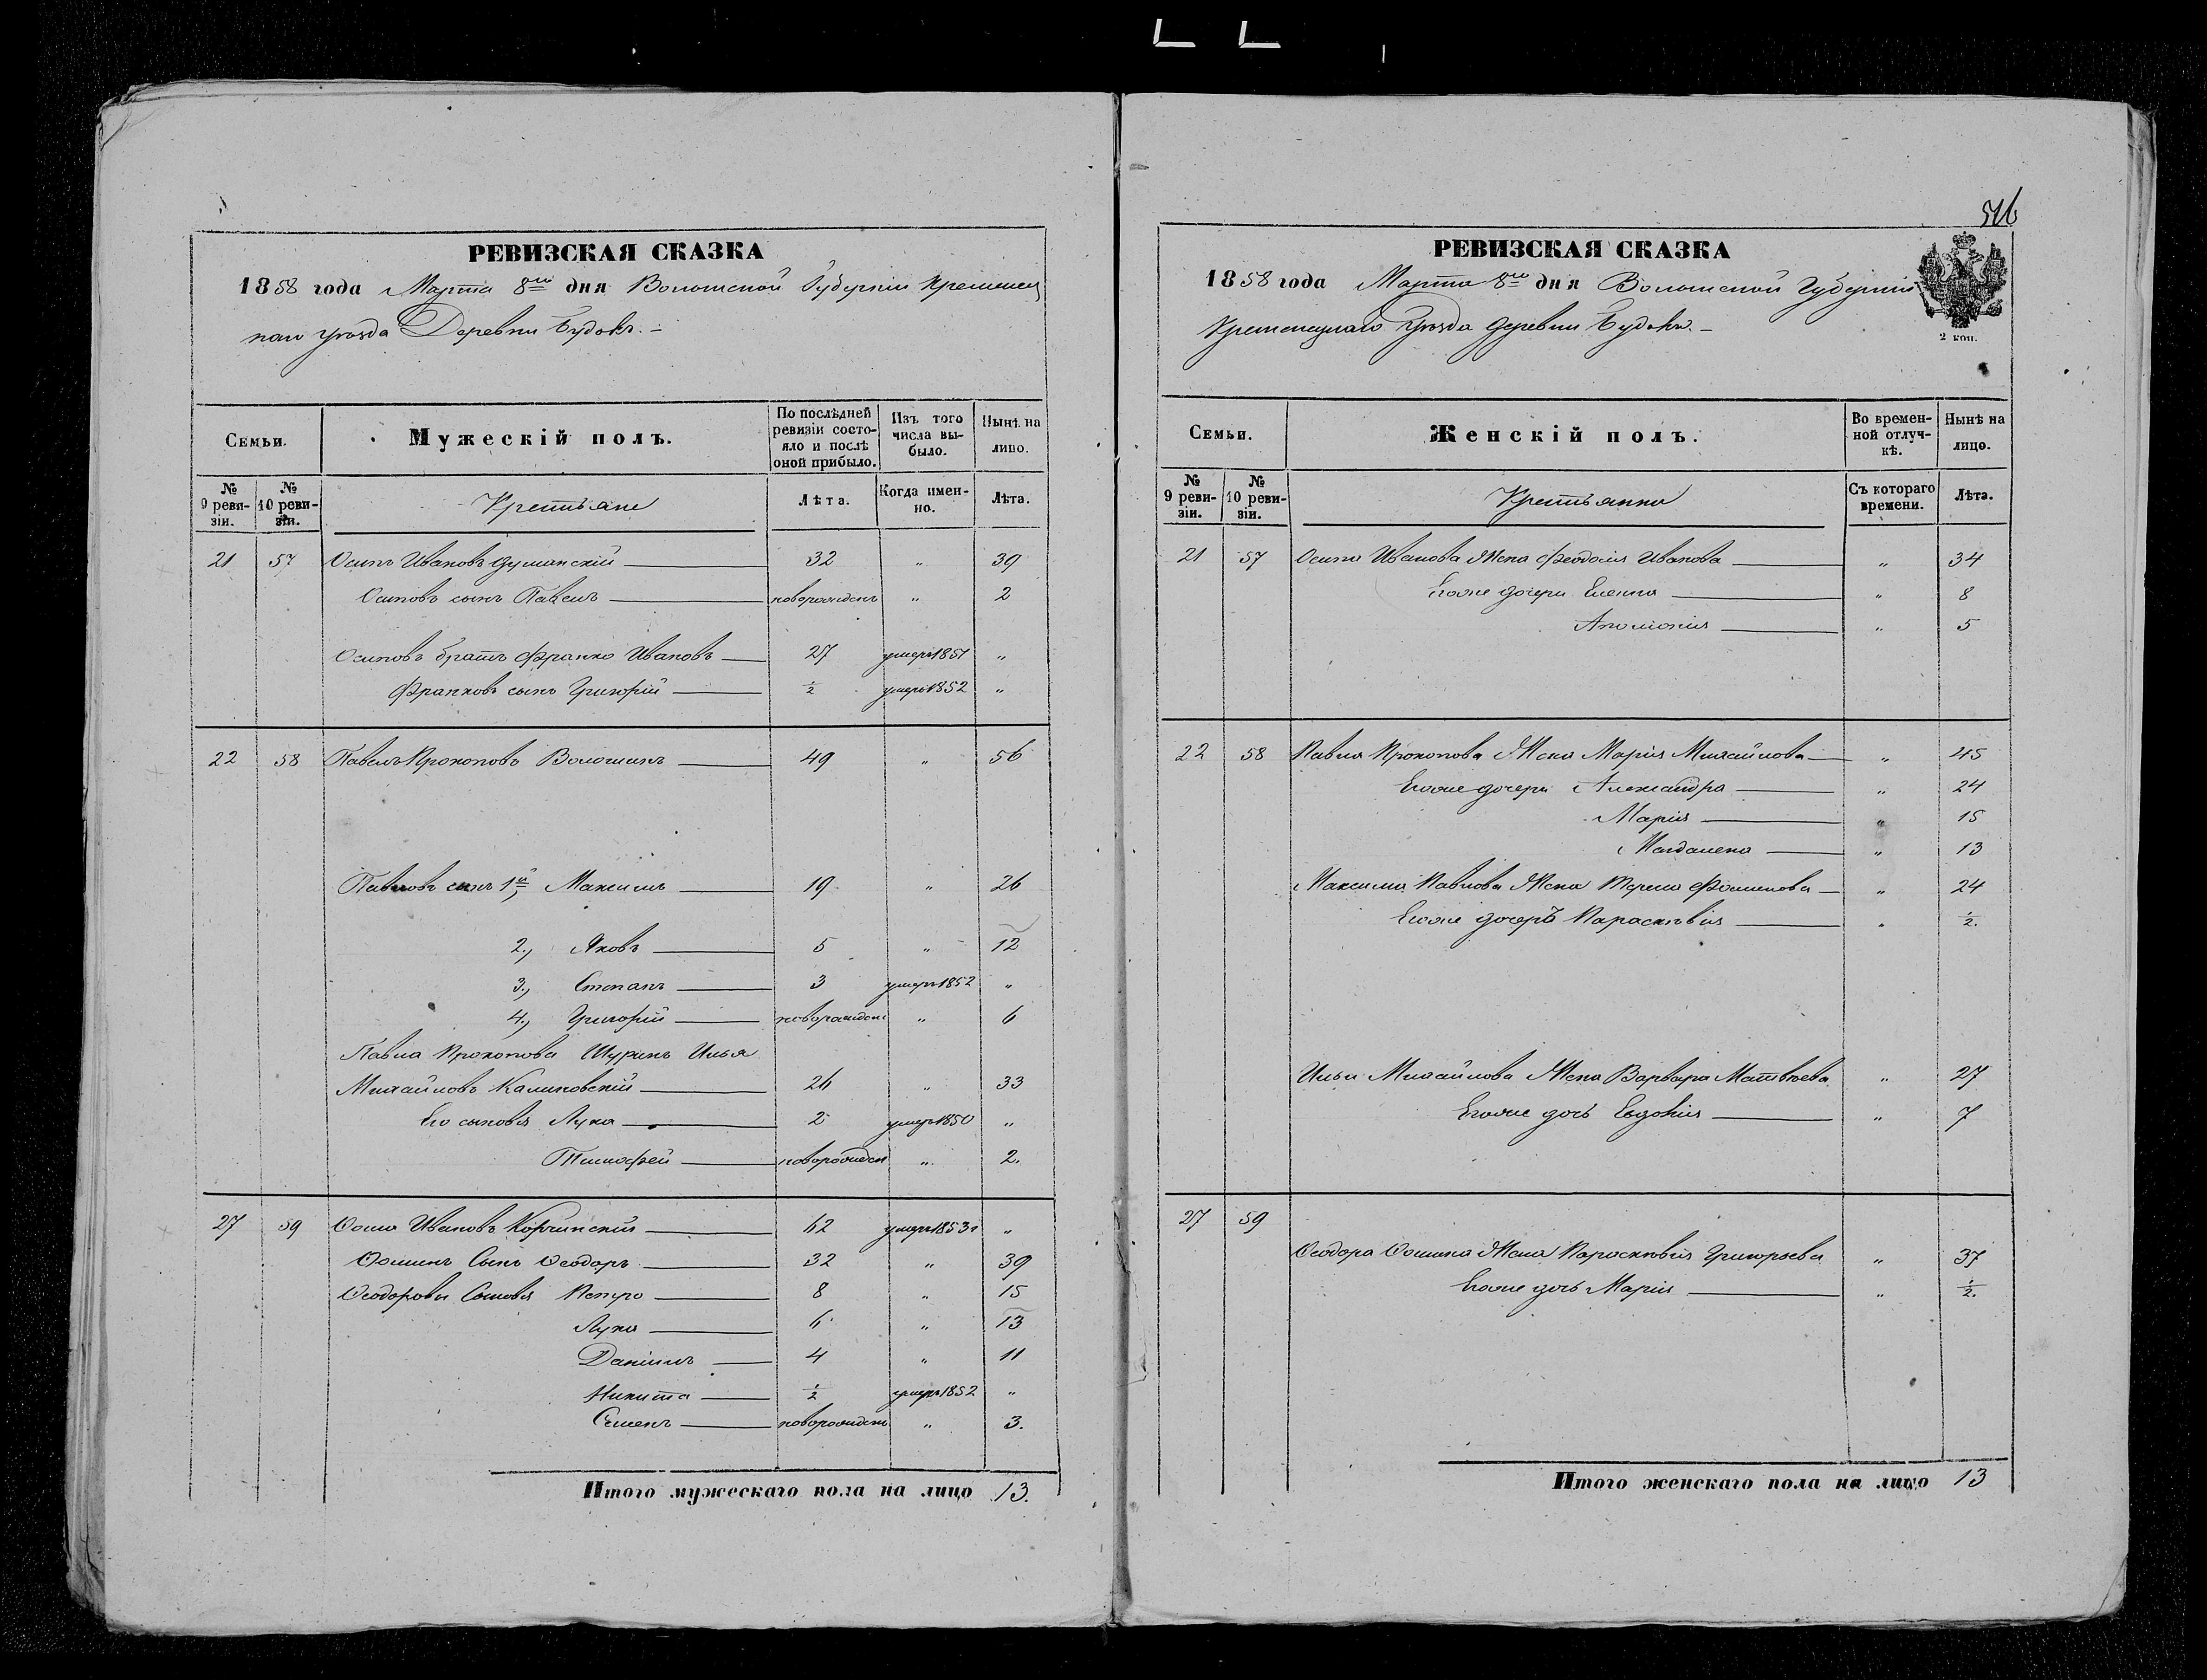 516
РЕВИЗСКАЯ СКАЗКА
1858 года Марта 8го дня Волынской Губерніи Кременец
каго уѣзда Деревни Будокъ. –
Семьи.
Мужескій полъ.
По послѣдней ревизіи состояло и послѣ оной прибыло.
Изъ того числа выбыло.
Нынѣ на лицо.
№ 9 ревизіи.
№ 10 ревизіи.
Крестьяне
Лѣта.
Когда именно.
Лѣта.
21 57 Осипъ Ивановъ Думанскій 32 " 39
Осиповъ сынъ Павелъ новорожденъ " 2
Осиповъ братъ Франко Ивановъ 27 умеръ 1851 "
Франковъ сынъ Григорій ½ умеръ 1852 "
22 58 Павелъ Прокоповъ Волошинъ 49 " 56
Павловъ сынъ 1й, Максимъ 19 " 26
2, Яковъ 5 " 12
3, Степанъ 3 умеръ 1852 "
4, Григорій новорожден " 6
Павла Прокопова Шуринъ Илья
Михайловъ Калиновскій 26 " 33
Его сыновья Лука 2 умеръ 1850 "
Тимофей новорожден " 2.
27 59 Ѳома Ивановъ Корчинскій 62 умеръ 1853 "
Ѳоминъ Сынъ Ѳеодоръ 32 " 39
Ѳеодоровы Сыновья Петро 8 " 15
Лука 6 " 13
Даніилъ 4 " 11
Никита ½ умеръ 1852 "
Семенъ новорожден " 3.
Итого мужескаго пола на лицо 13.
РЕВИЗСКАЯ СКАЗКА
1858 года Марта 8го дня Волынской Губерніи
Кременецкаго Уѣзда деревни Будокъ. –
2 коп.
Семьи.
Женскій полъ.
Во временной отлучкѣ.
Нынѣ на лицо.
№ 9 ревизіи.
№ 10 ревизіи.
Крестьянки
Съ котораго времени.
Лѣта.
21 57 Осипа Иванова Жена Феодосія Иванова " 34
Егоже дочери Елена " 8
Аполонія " 5
22 58 Павла Прокопова Жена Марія Михайлова " 45
Егоже дочери Александра " 24
Марія " 15
Магдалена " 13
Максима Павлова Жена Тереза 24
Егоже дочеръ Параскевія " ½.
Ильи Михайлова Жена Варвара Матвѣева " 27
Егоже дочь Евдокія " 7
27 59
Ѳеодора Ѳомина Жена Параскевія Григорьева " 37
Егоже дочь Марія " ½.
Итого женскаго пола на лицо 13